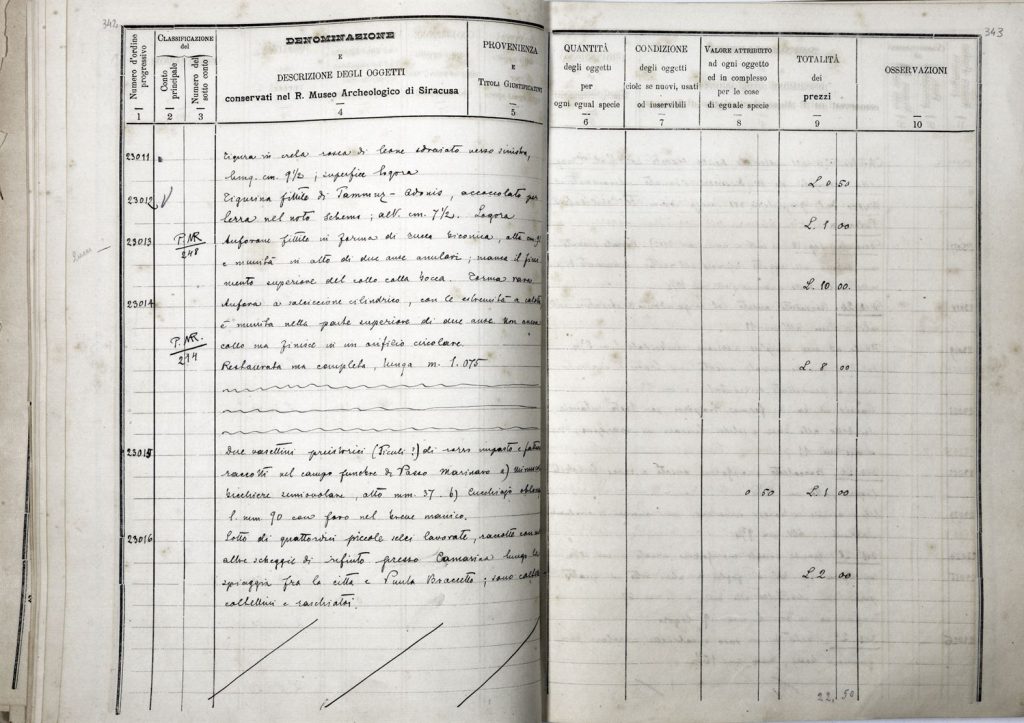 342
343
Numero d'ordine progressivo
1
CLASSIFICAZIONE
del
Conto principale
2
Numero del sotto conto
3
DENOMINAZIONE
E
DESCRIZIONE DEGLI OGGETTI
conservati nel R. Museo Archeologico di Siracusa
4
PROVENIENZA
E
TITOLI GIUSTIFICATIVI
5
QUANTITÀ
degli oggetti
per
ogni egual specie
6
CONDIZIONE
degli oggetti
cioè: se nuovi, usati
od inservibili
7
VALORE ATTRIBUITO
ad ogni oggetto
ed in complesso
per le cose
di eguale specie
8
TOTALITÀ
dei
prezzi
9
OSSERVAZIONI
10
23011
Figura in creta rossa di leone sdraiato verso sinistra,
lung. cm. 9½; superfice logora
L. 0 50
23012
Figurina fittile di Tammuz-Adonis, accoccolato per
terra nel noto schema; alt. cm. 7½. Logora
L. 1 00
23013
P. M.R.
248
Anforone fittile in forma di zucca biconica, alto cm.
e munito in alto di due anse anulari; manca il fini-
mento superiore del collo colla bocca. Forma rara
L. 10 00
23014
Anfora a salciccione cilindrico, con le estremità a calotta
è munita nella parte superiore di due anse non ancora
collo ma finisce in un orifizio circolare.
P. M.R.
214
Restaurata ma completa, lunga m. 1.075
L. 8 00
23015
Due vasettini preistorici (Siculi?) di rozzo impasto e fattura
raccolti nel campo funebre di Passo Marinaro a)
bicchiere semiovolare, alto mm. 37. b) Cucchiajo oblungo
l. mm. 90 con foro nel breve manico.
0 50
L. 1 00
23016
Lotto di quattordici piccole selci lavorate, raccolte con
altre schegge di rifiuto presso Camarina lungo la
spiaggia fra la città e Punta Braccetto; sono
coltellini e raschiatoi.
L. 2 00
22,50